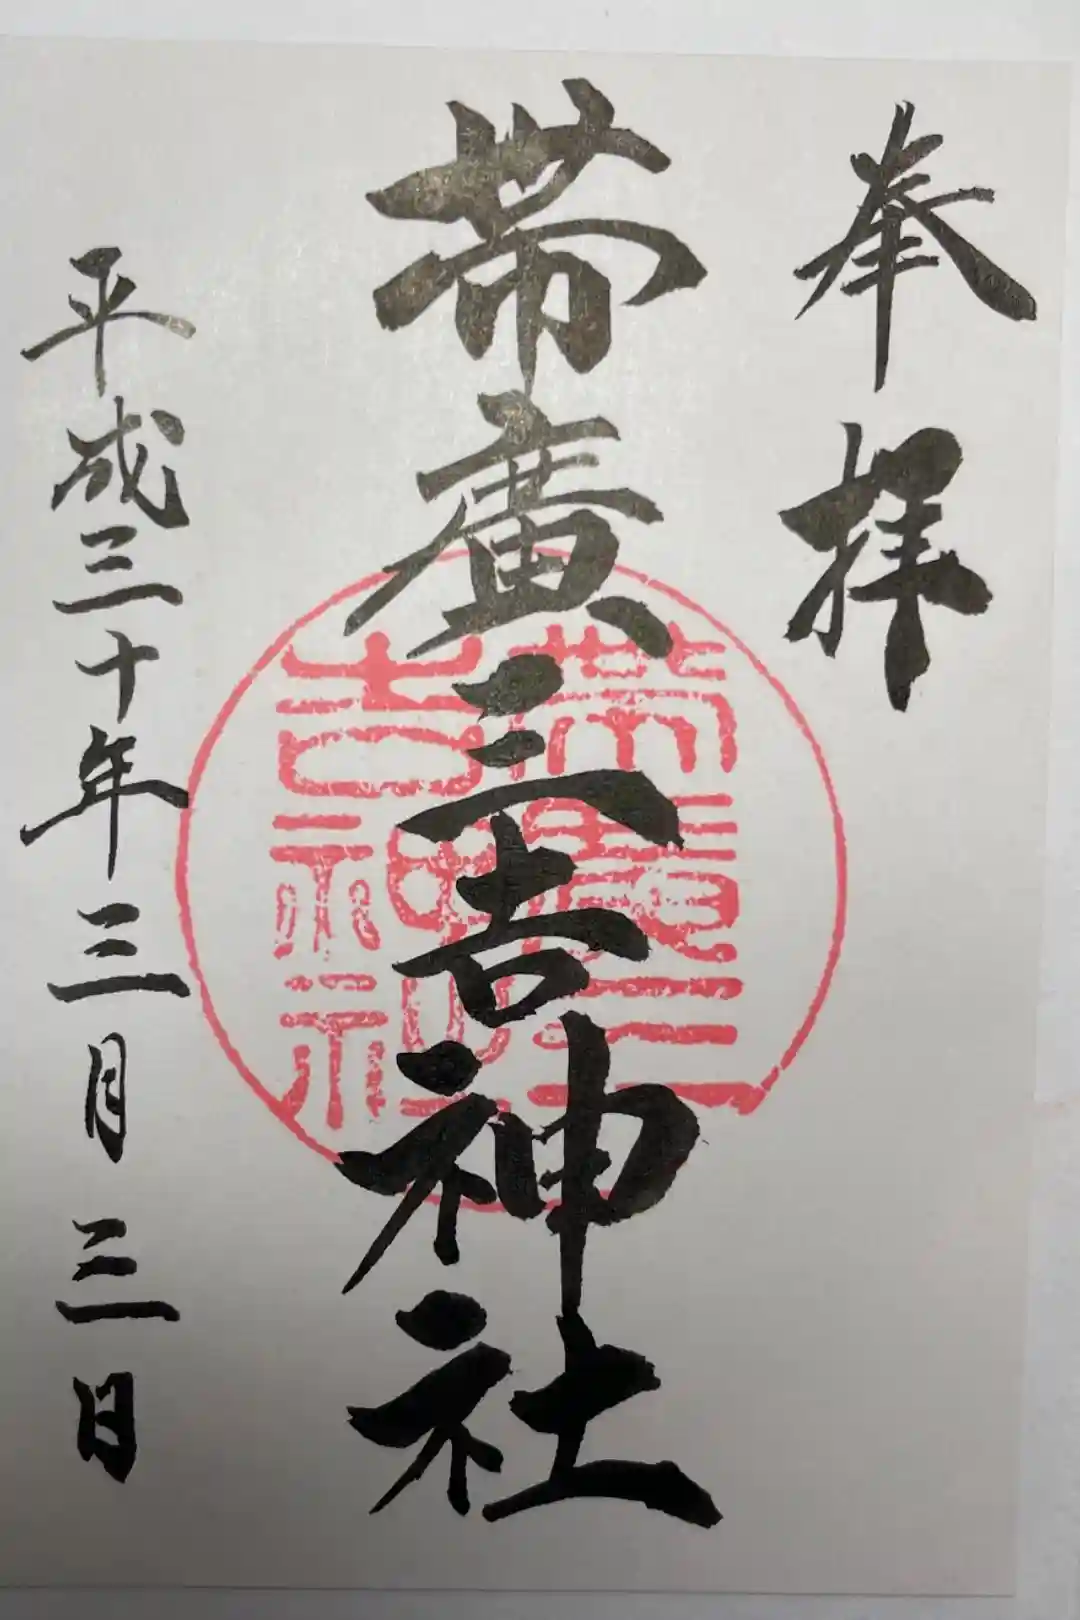 奉拝
帯廣三吉神社
帯廣三吉神社
平成三十年三月三日